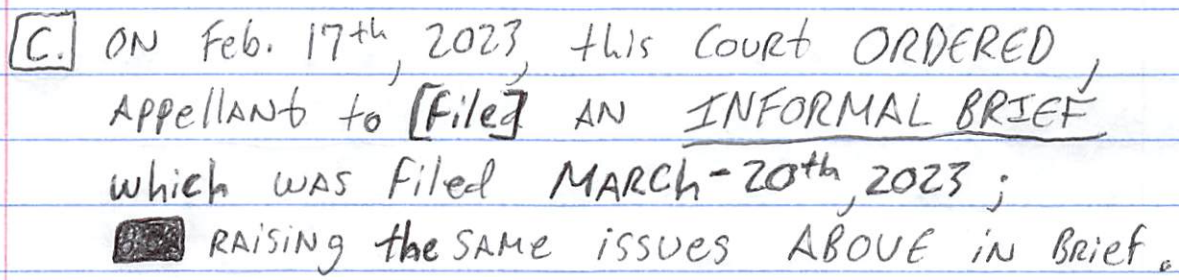 C. ON Feb. 17th, 2023, this COURt ORDERED,
APPellANt to [File] AN INFORMAL BRIEF
which WAS Filed MARCh-20th, 2023;
RAiSiNg the SAMe issues ABOVE iN BRief.